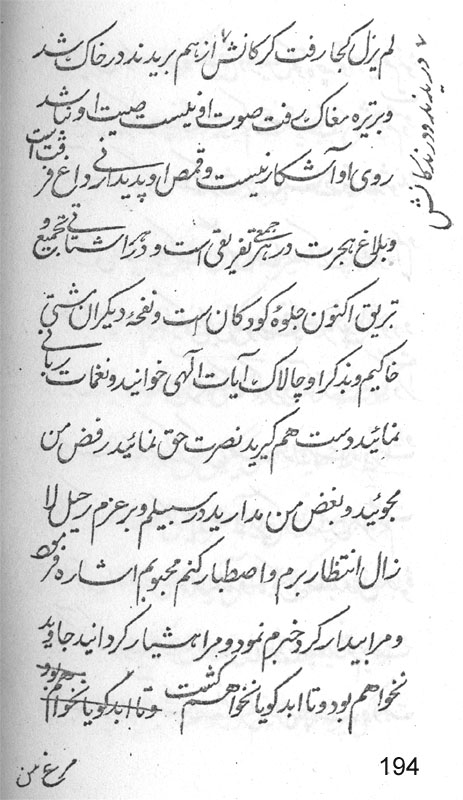 لم یزل کجا رفت کرکانش ۷ از هم بریدند در خاک شد
و بتیره مغاک رفت صوت او نیست صیت او نباشد
روی او آشکار نیست و قمص او پدیدار نی داغ فرقت است
و بلاغ هجرت در هر جمعی تفریقی است و در هر اشتاتی تجمیع و
تبریق اکنون جلوه کودکان است و نفحه دیکران مشتی
خاکیم و بذکر او چالاک آیات الهی خوانید و نغمات ربانی
نمائید دست هم گیرید نصرت حق نمائید رفض من
مجوئید و بغض من مدارید در سبیلم و بر عزم رحیل لا
زال انتظار برم و اصطبار کنم محبوبم اشاره فرمود
و مرا بیدار کرد خبرم نمود و مرا هشیار کردانید جاوید
نخواهم بود و تا ابد کویا نخواهم گشت و تا ابد کویا نخواهم بود
مرغ من
۷ دریدند و درندکانش
194